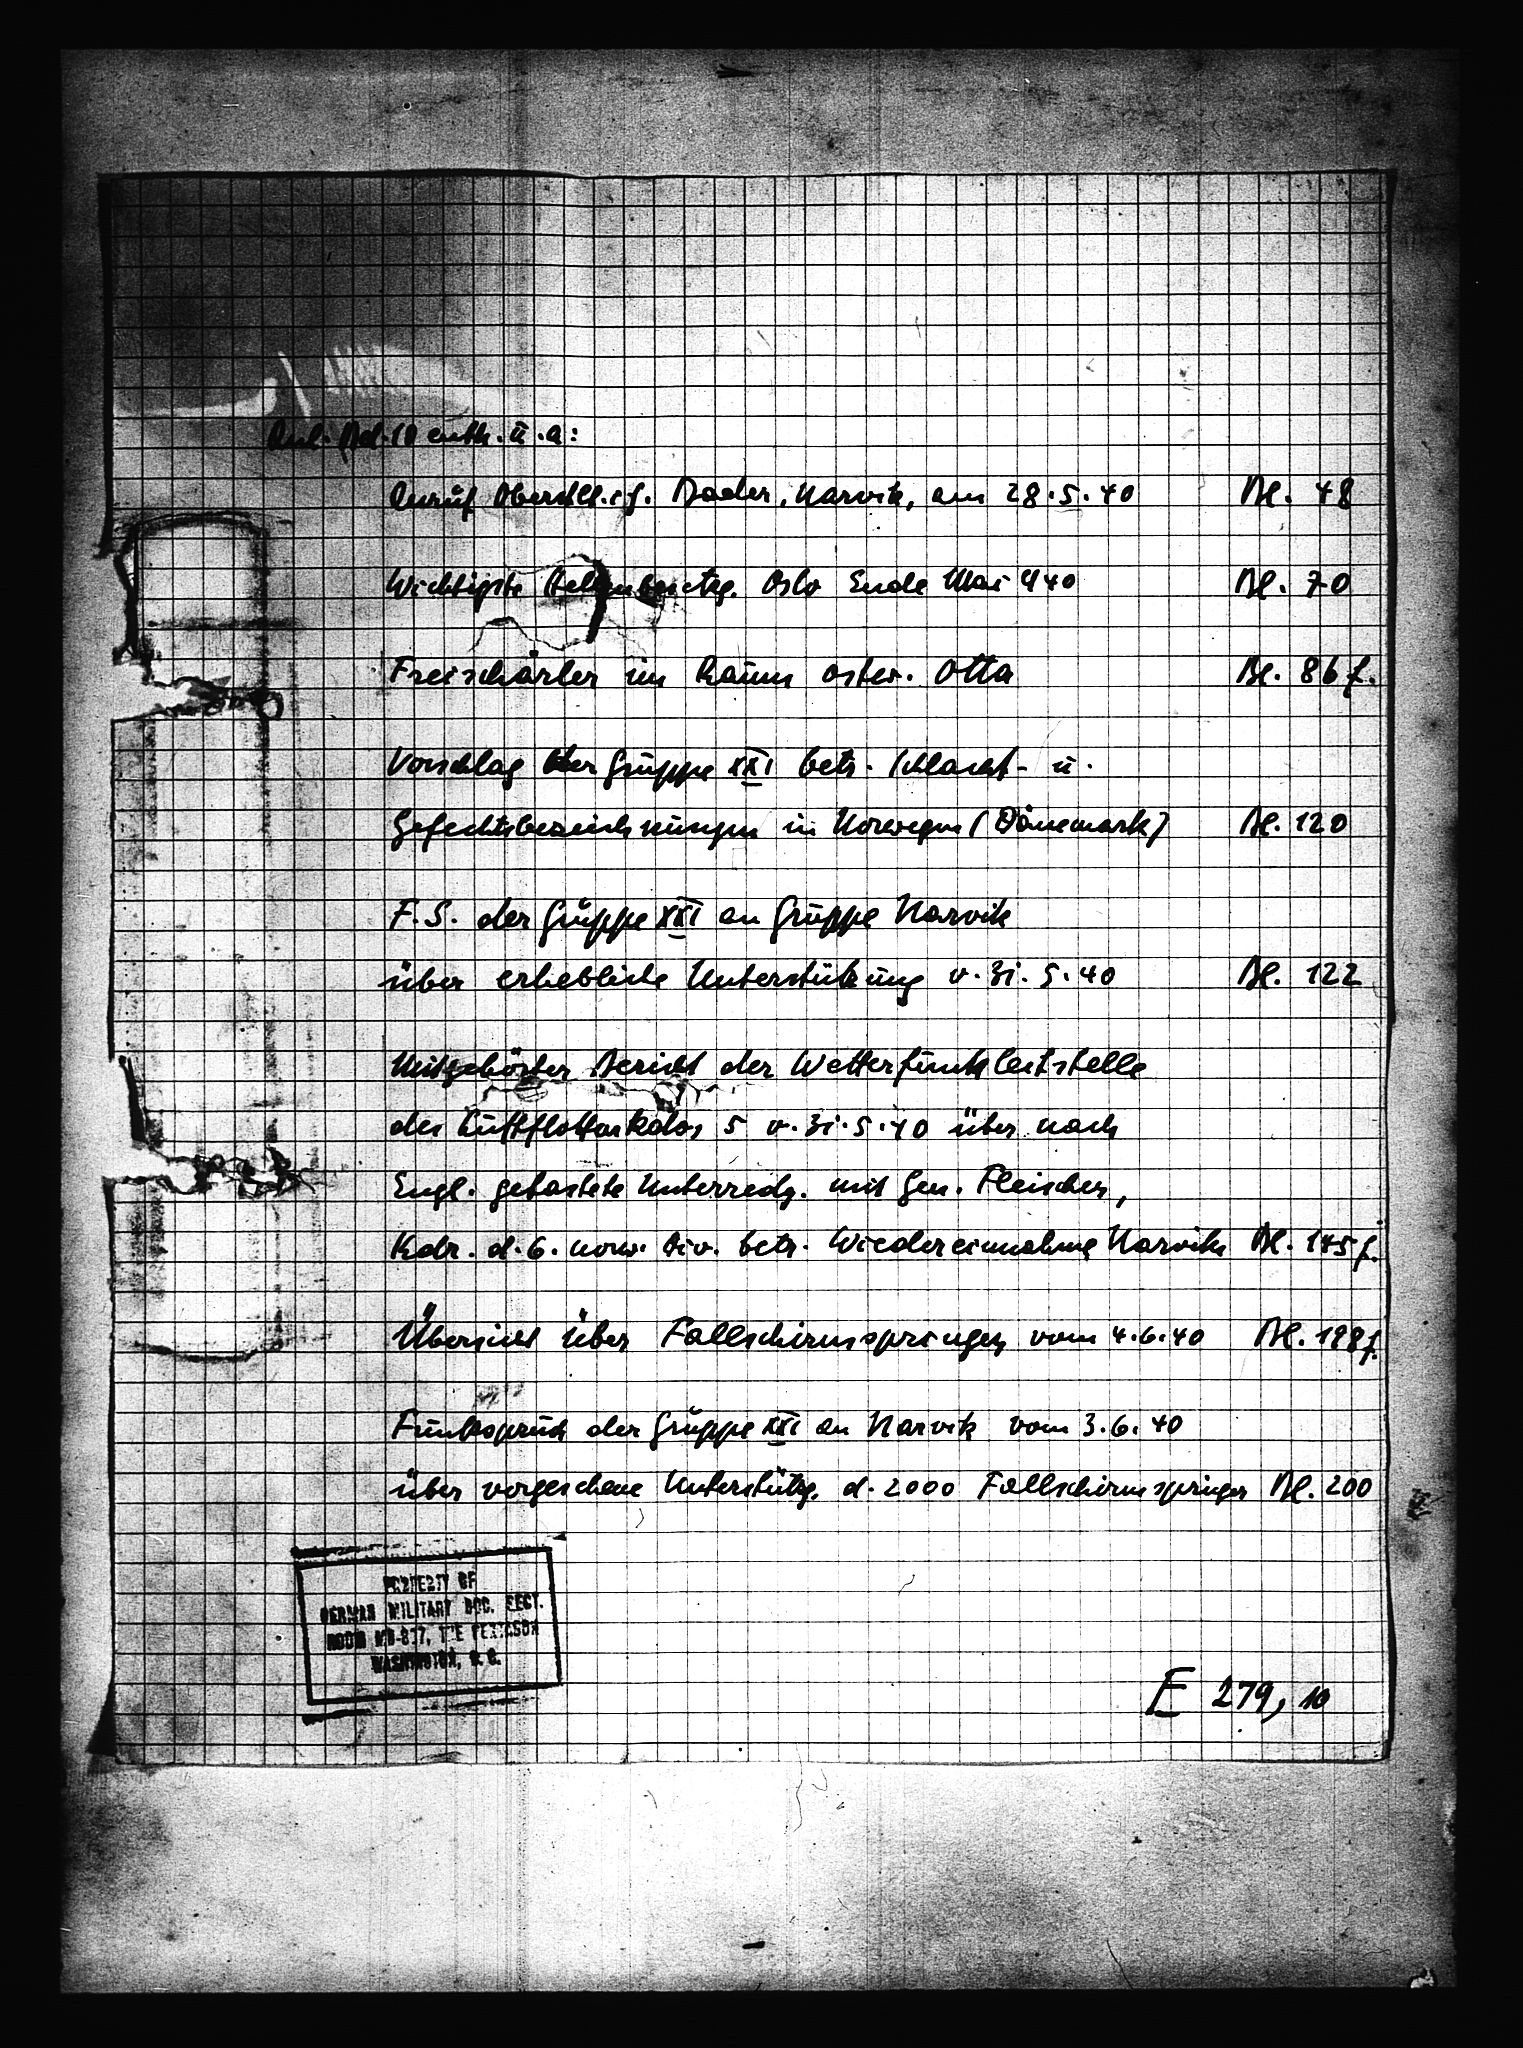 Anl. Bd. 10 enth. u. a:
Anruf Oberstlt. i.G. Bader, Narvik, am 28.5.40 Bl. 48
Wichtigste Stellenbesetzg. Oslo Ende Mai 940 Bl. 70
Freischärler im Raum ostw. Otta Bl. 86 f.
Vorschlag der Gruppe XXI betr. Schlacht- u.
Gefechtsbezeichnungen in Norwegen (Dänemark) Bl. 120
F.S. der Gruppe XXI an Gruppe Narvik
über erhebliche Unterstützung v. 31.5.40 Bl. 122
Mitgehörter Bericht der Wetterfunkleitstelle
des Luftflottenkdos 5 v. 31.5.40 über nach
Engl. getastete Unterredg. mit Gen. Fleischer,
Kdr. d. 6. norw. Div. betr. Wiedereinnahme Narviks Bl. 145 f.
Übersicht über Fallschirmspringer vom 4.6.40 Bl. 188 f.
Funkspruch der Gruppe XXI an Narvik vom 3.6.40
über vorgesehene Unterstützg. d. 2000 Fallschirmspringer Bl. 200
PROPERTY OF
GERMAN MILITARY DOC. SECT.
ROOM MB-877, THE PENTAGON
WASHINGTON, D.C.
E 279, 10